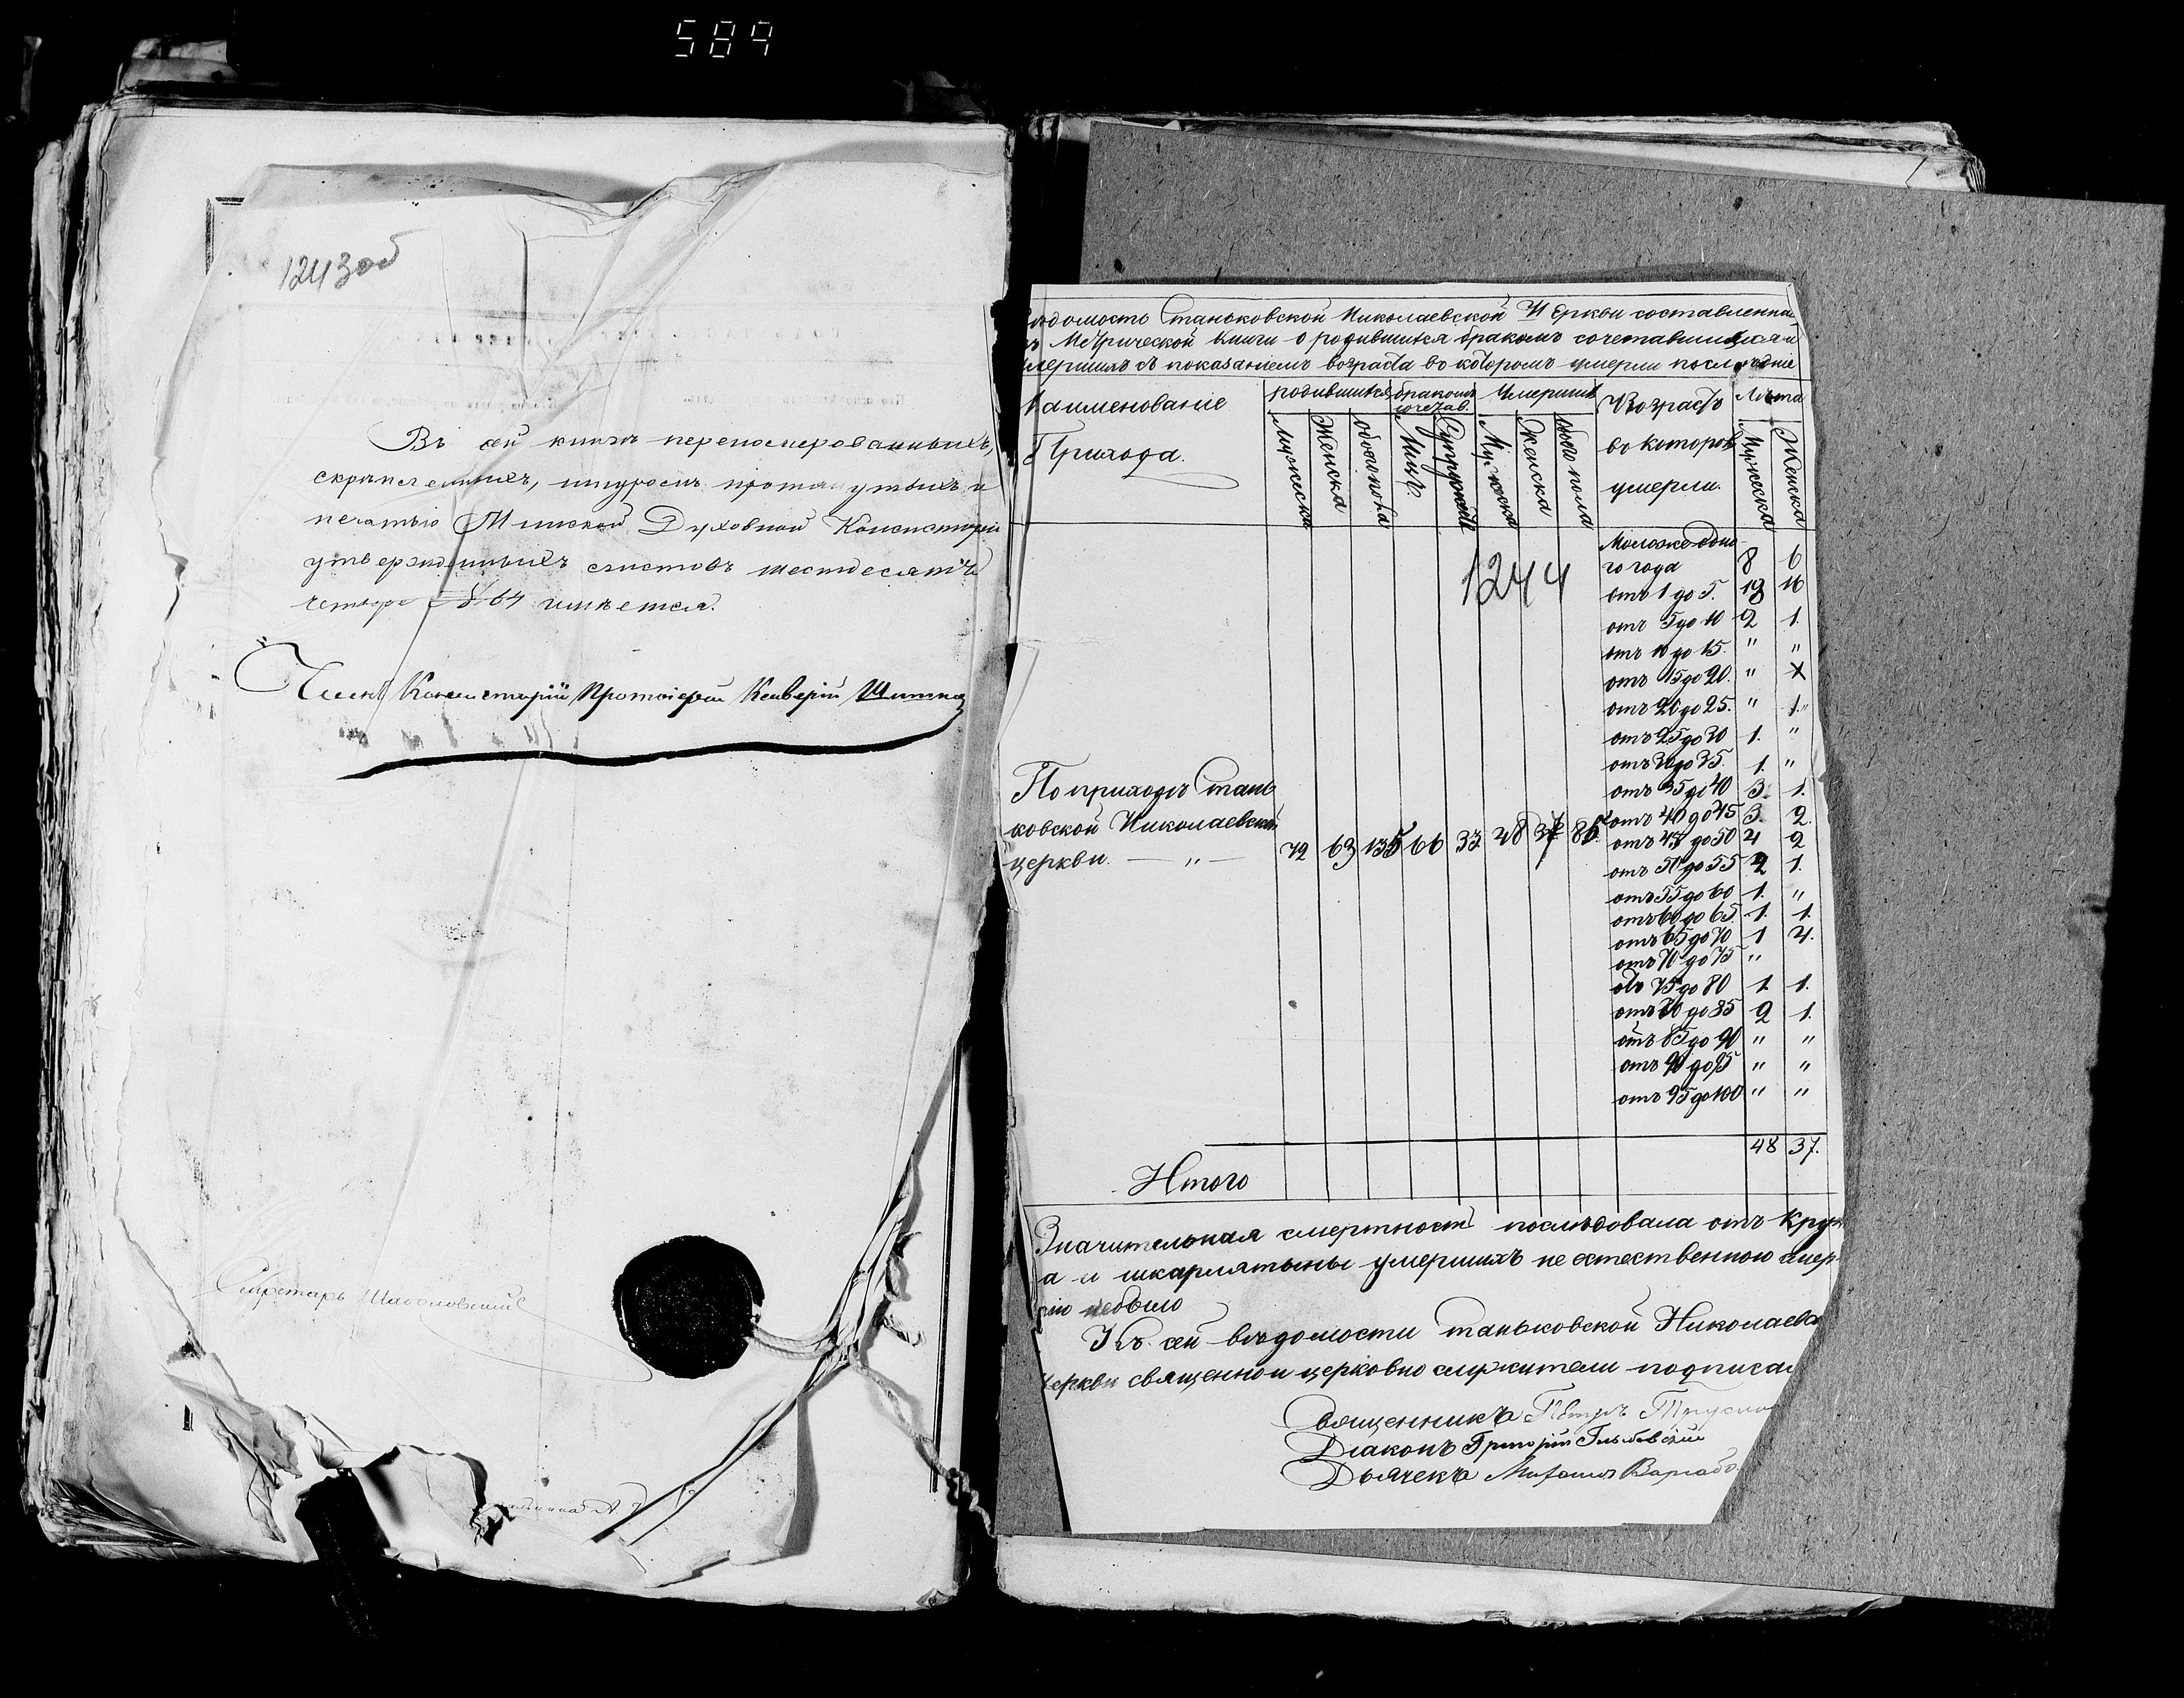 589
1243 об
Въ сей книгѣ перенумерованныхъ,
скрѣпленныхъ, шнуромъ протянутыхъ и
печатью Минской Духовной Консисторіи
утвержденныхъ листовъ шестьдесятъ
четыре 64 имѣется.
Членъ Консисторіи Протоіерей
Секретарь
Вѣдомость Станьковской Николаевской Церкви составленна
Метрической Книги о родившихся бракомъ сочетавшихся и
умершихъ съ показаніемъ возраста во которомъ умерли послѣдніе
Наименованіе родившихся бракомъ сочетав. Умершихъ Возрастъ Лѣта
Прихода. во которов умерли.
Мужеска Женска обоего пола Лицъ Супружест Мужеска Женска обоего пола Мужеска Женска
1244
Моложе одно-
го года 8 6
отъ 1 до 5. 19 16
отъ 5 до 10 2 1.
отъ 10 до 15. " "
отъ 15 до 20. "
отъ 20 до 25. " 1.
отъ 25 до 30 1. "
отъ 30 до 35. 1. "
отъ 35 до 40 3. 1.
отъ 40 до 45 3. 2.
отъ 45 до 50 4 2
отъ 50 до 55 2 1.
отъ 55 до 60 1. "
отъ 60 до 65. 1. 1.
отъ 65 до 70 1 4.
отъ 70 до 75 "
отъ 75 до 80 1. 1.
отъ 80 до 85 2 1.
отъ 85 до 90 " "
отъ 90 до 95 " "
отъ 95 до 100 " "
По приходу Стань
ковской Николаевской
церкви. — " — 72 63 135 66 33 48 37 85
48 37.
Итого
Значительная смертность послѣдовала отъ Круп
а и шкарлятыны умершихъ не естественною смер-
тію небыло
Къ сей вѣдомости таньковской Николаевс
Церкви священно и церковно служители подписал
Священникъ Петръ
Діаконъ Григорій
Дьячекъ Михаилъ